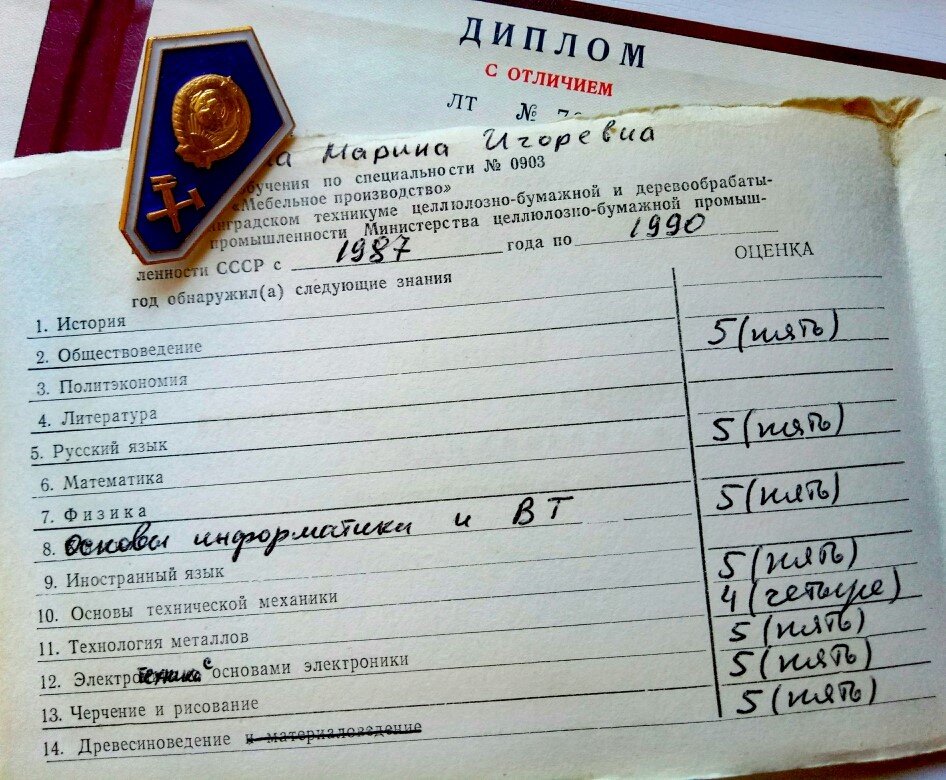 ДИПЛОМ
С ОТЛИЧИЕМ
ЛТ №
на Марина Игоревна
обучения по специальности № 0903
«Мебельное производство»
нградском техникуме целлюлозно-бумажной и деревообрабаты-
промышленности Министерства целлюлозно-бумажной промыш-
ленности СССР с 1987 года по 1990
год обнаружил(а) следующие знания ОЦЕНКА
1. История
2. Обществоведение
3. Политэкономия 5 (пять)
4. Литература
5. Русский язык
6. Математика 5 (пять)
7. Физика
8. Основы информатики и ВТ 5 (пять)
9. Иностранный язык
10. Основы технической механики 5 (пять)
11. Технология металлов 4 (четыре)
12. Электротехника с основами электроники 5 (пять)
13. Черчение и рисование 5 (пять)
14. Древесиноведение и материаловедение 5 (пять)